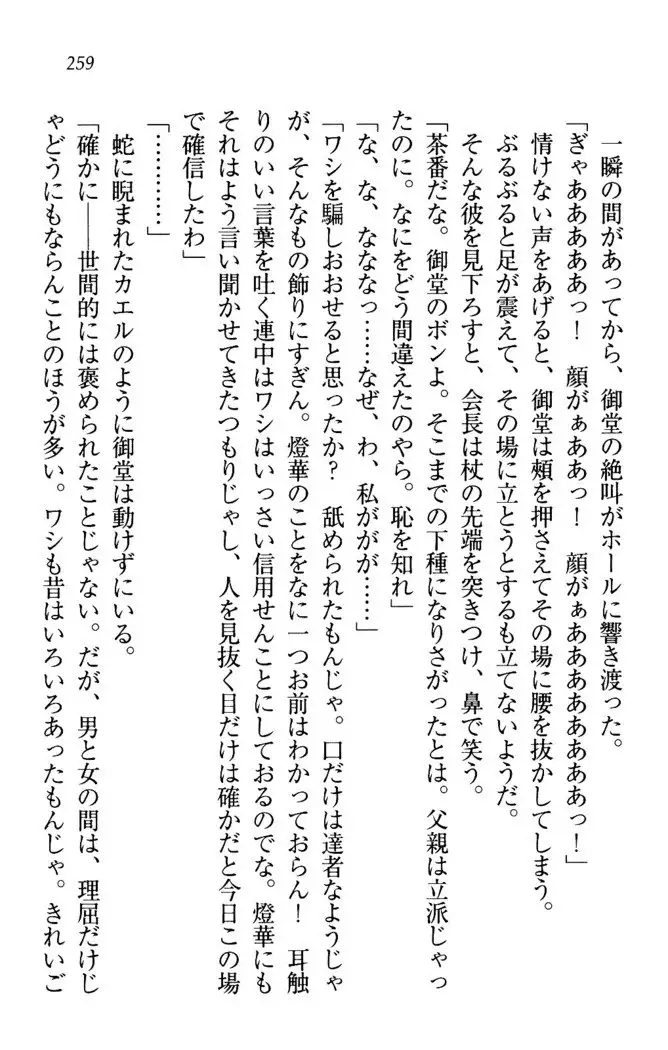 259
一瞬の間があってから、御堂の絶叫がホールに響き渡った。
「ぎゃあああああっ！　顔がぁああっ！　顔がぁあああああああああっ！」
情けない声をあげると、御堂は頰を押さえてその場に腰を抜かしてしまう。
ぶるぶると足が震えて、その場に立とうとするも立てないようだ。
そんな彼を見下ろすと、会長は杖の先端を突きつけ、鼻で笑う。
「茶番だな。御堂のボンよ。そこまでの下種になりさがったとは。父親は立派じゃっ
たのに。なにをどう間違えたのやら。恥を知れ」
「な、な、なななっ……なぜ、わ、私ががが……」
「ワシを騙しおおせると思ったか？　舐められたもんじゃ。口だけは達者なようじゃ
が、そんなもの飾りにすぎん。燈華のことをなに一つお前はわかっておらん！　耳触
りのいい言葉を吐く連中はワシはいっさい信用せんことにしておるのでな。燈華にも
それはよう言い聞かせてきたつもりじゃし、人を見抜く目だけは確かだと今日この場
で確信したわ」
「…………」
蛇に睨まれたカエルのように御堂は動けずにいる。
「確かに――世間的には褒められたことじゃない。だが、男と女の間は、理屈だけじ
ゃどうにもならんことのほうが多い。ワシも昔はいろいろあったもんじゃ。きれいご